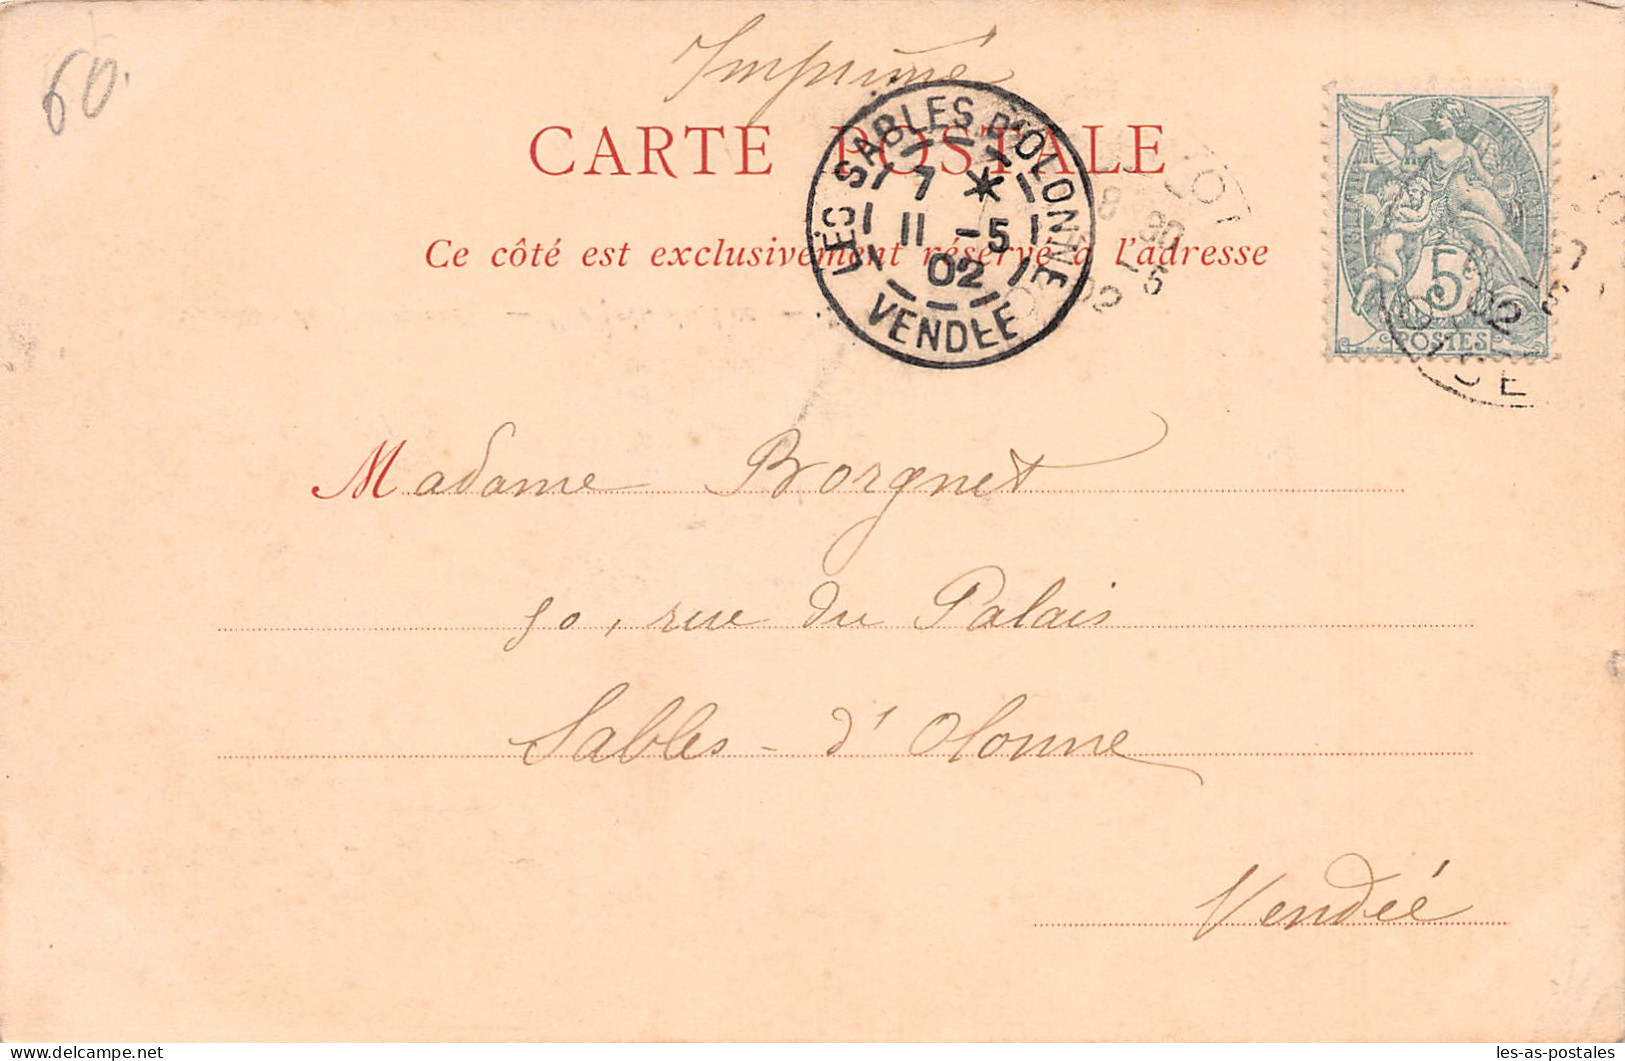 60.
Imprimé
CARTE POSTALE
LES SABLES D'OLONNE
7 *
11 -5
02
VENDÉE
Ce côté est exclusivement réservé à l'adresse
5
POSTES
Madame Borgnet
50, rue du Palais
Sables-d'Olonne
Vendée
les-as-postales